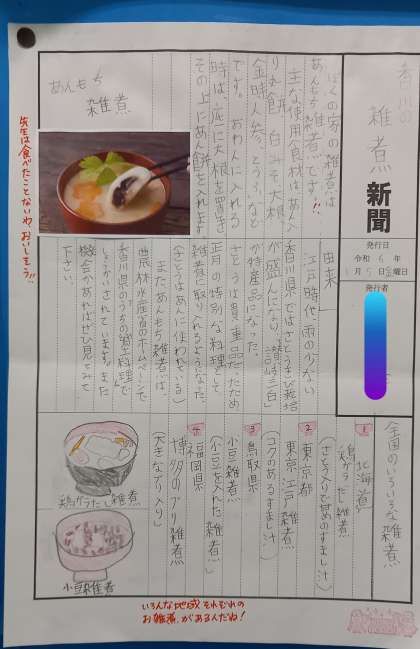 香川の
雑煮
新聞
発行日
令和6年
1月5日金曜日
発行者
ぼくの家の雑煮は
あんもち雑煮です!!
主な使用食材はあん入
り丸餅、白みそ、大根、
金時人参、とうふ、など
です。おわんに入れる
時は、底に大根を置き
その上にあん餅を入れます
あんもち
雑煮
先生は食べたことないわ おいしそう!!
由来
江戸時代、雨の少ない
香川県ではさとうきび栽培
が盛んになり、「讃岐三白」
が特産品になった。
さとうは貴重品だったため
正月の特別な料理として
雑煮に取り入れるようになった。
(さとうはあんに使われている)
またあんもち雑煮は、
農林水産省のホームページで
「香川県のうちの郷土料理」で
しょうかいされています。また
機会があればぜひ見てみて
下さい。
全国のいろいろな雑煮
1 北海道
鶏がらだし雑煮
(さとう入りで甘めのすまし汁)
2 東京都
東京江戸雑煮
(コクのあるすまし汁)
3 鳥取県
小豆雑煮
(小豆を入れた雑煮)
4 福岡県
博多のブリ雑煮
(大きなブリ入り)
鶏がらだし雑煮
小豆雑煮
いろんな地域それぞれの
お雑煮があるんだね!